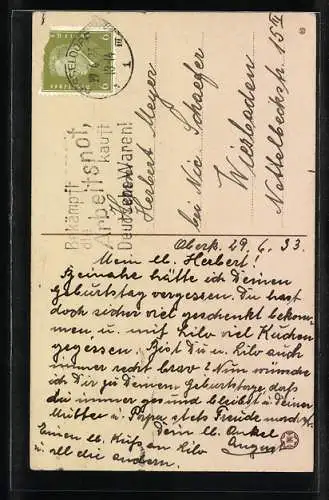 Bekämpft
die
Arbeitsnot,
kauft
Deutsche Waren!
Herrn
Herbert Meyer
bei Nic Schaefer
Wiesbaden
Nettelbeckstr. 15 III
Oberk. 29. 6. 33.
Mein lb. Herbert!
Beinahe hätte ich Deinen
Geburtstag vergessen. Du hast
doch sicher viel geschenkt bekom-
men u. mit Lilo viel Kuchen
gegessen. Bist Du u. Lilo auch
immer recht brav? Nun wünsche
ich Dir zu Deinem Geburtstage daß
du immer gesund bleibst u. Deiner
Mutter u. Papa stets Freude machst.
Dein lb. Onkel
August
Einen lb. Kuß an Lilo
u. all die andern.